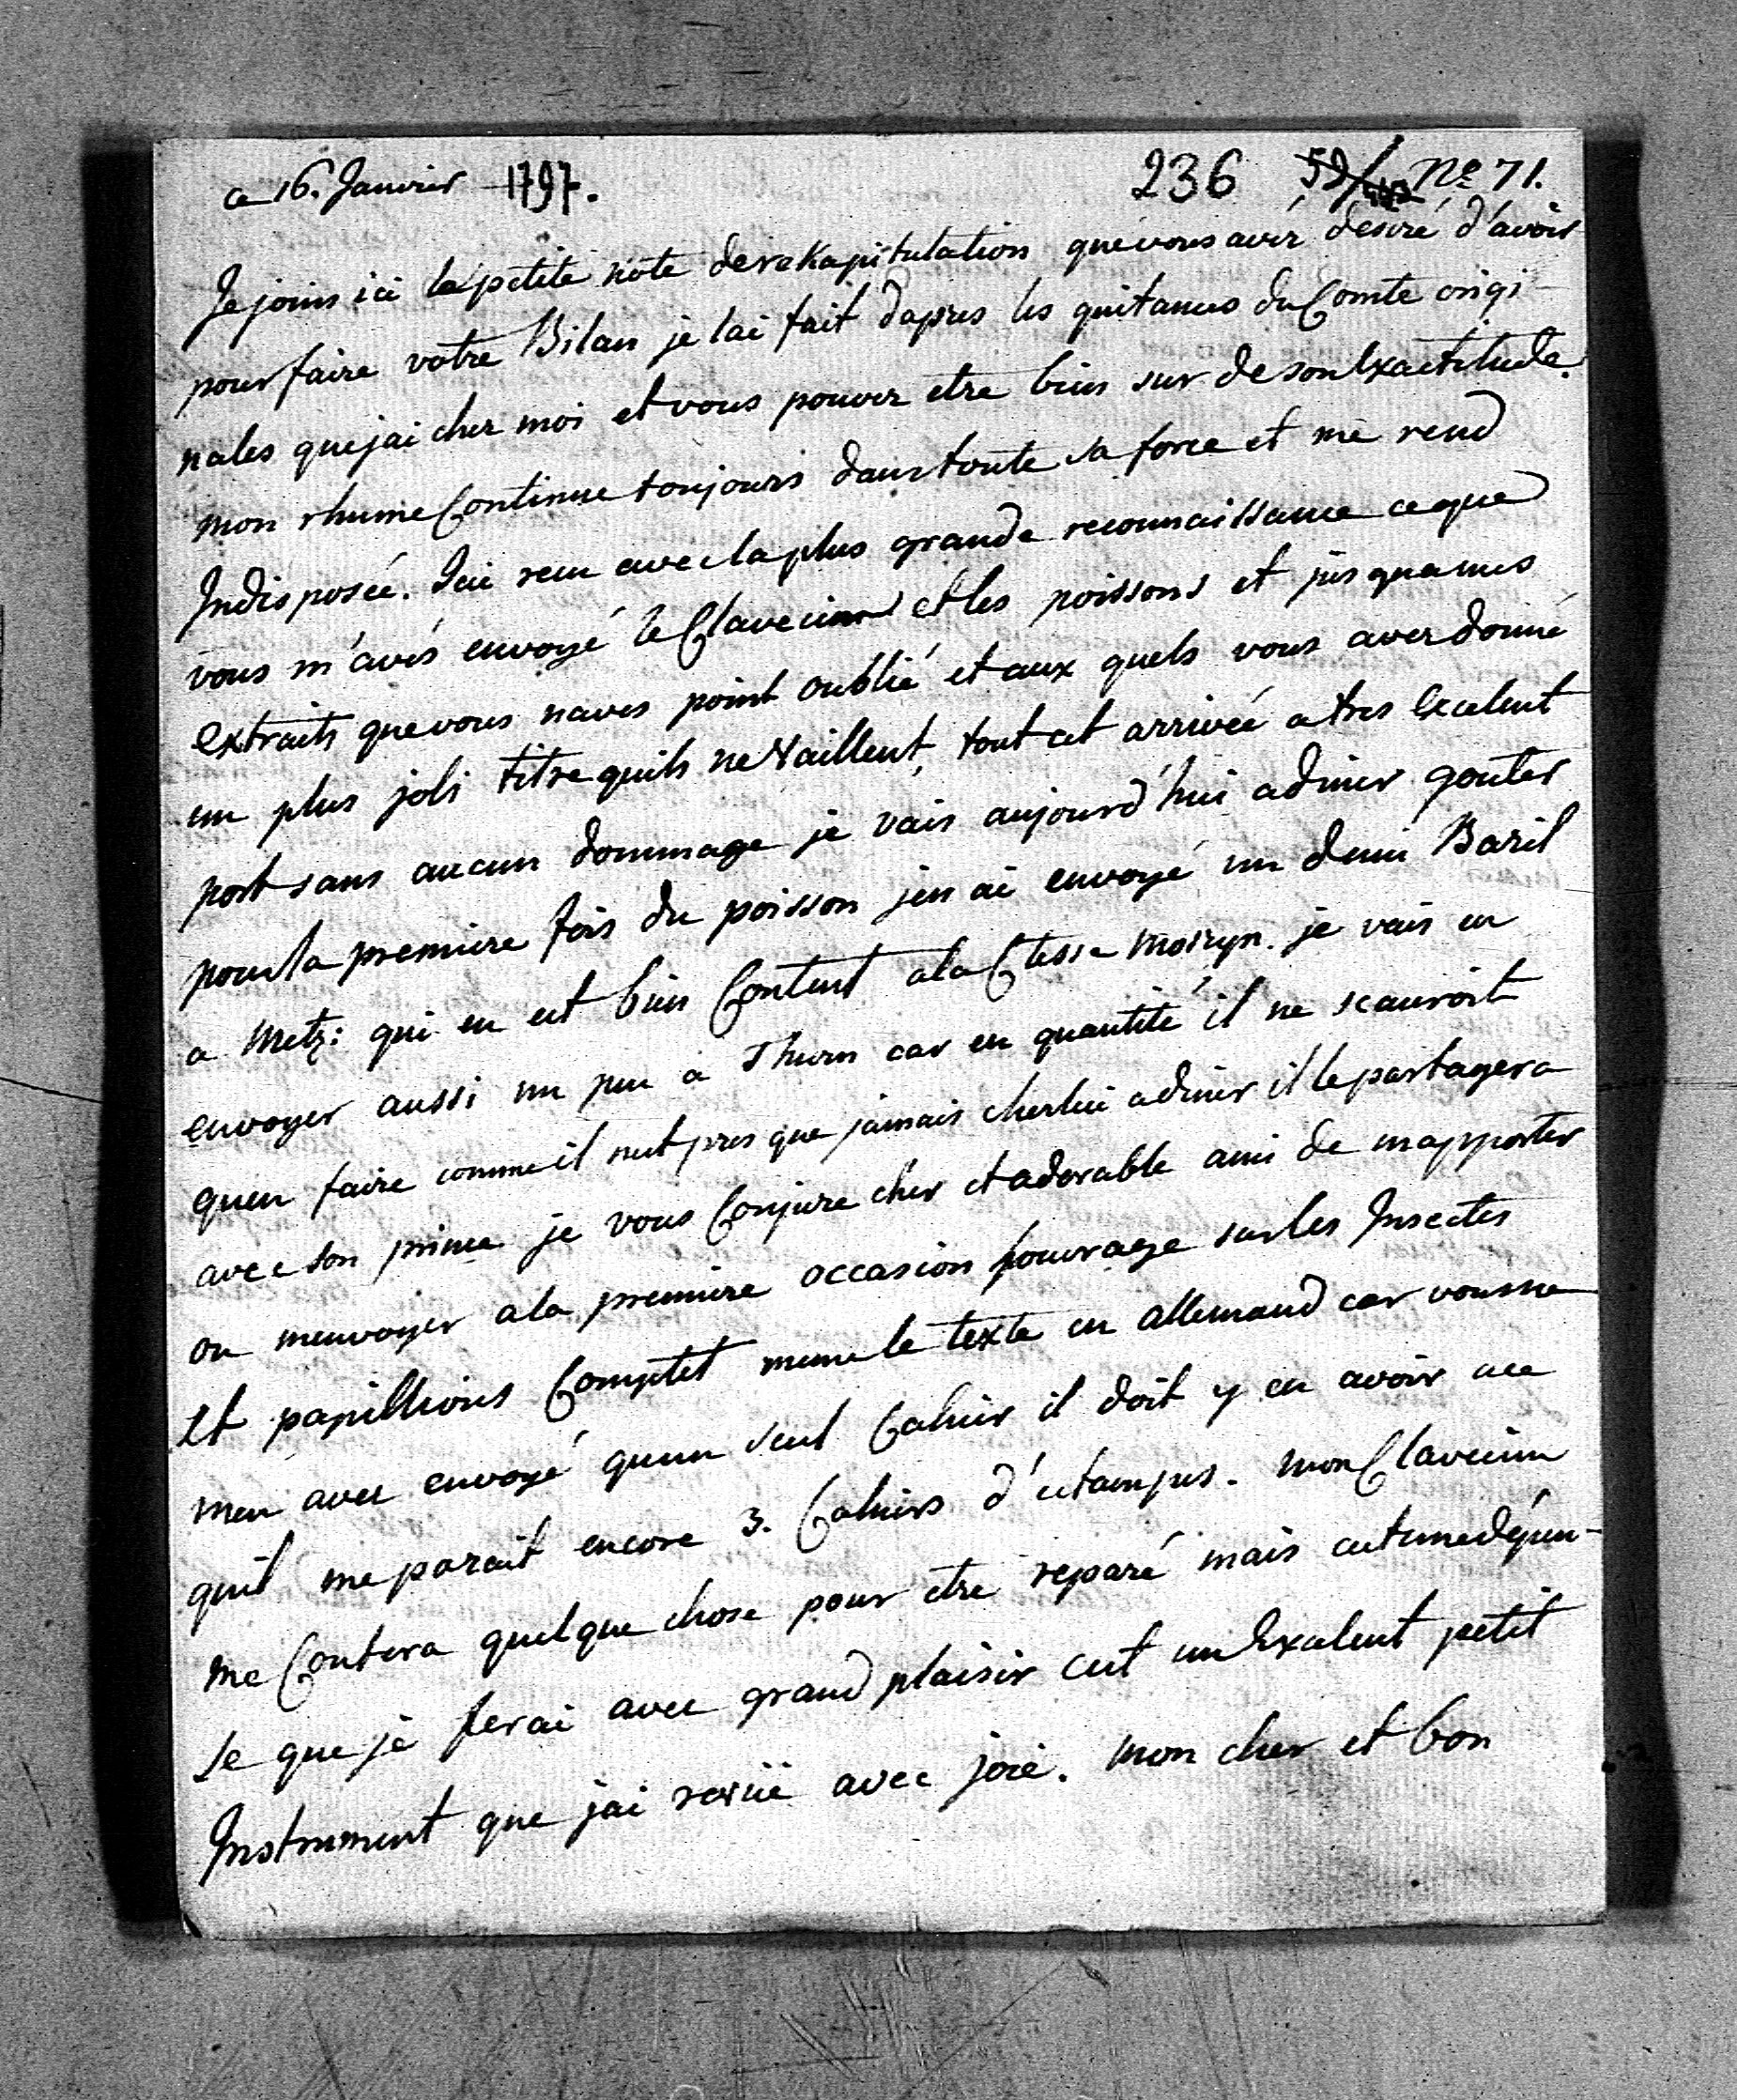 ce 16. Janvier 1797. 236 No 71.
Je joins ici la petite note de rekapitulation que vous avér desiré d'avoir
pour faire votre Bilan je lai fait dapres les quitances du Comte origi-
nales que jai cher moi et vous pouver etre bien sur de son Exactitude.
mon rhume Continue toujours dans toute sa force et me rend
Indisposée. Jai recu avec la plus grande reconnaissance ce que
vous m'avés envoyé le Clavecin et les poissons et jusqua mes
Extraits que vous naves point oublié et aux quels vous aver donné
un plus joli titre quils ne Vaillent, tout est arrivée a tres Excelent
port sans aucun dommage je vais aujourd'hui a diner gouter
pour la premiere fois du poisson jen ai envoyé un demi Baril
a Metz: qui en est bien Content a la Ctesse Morzyn. je vais en
envoyer aussi un peu a Thurn car en quantité il ne scauroit
quen faire comme il nest pres que jamais cher lui a diner il le partagera
avec son prince je vous Conjure cher et adorable ami de mapporter
ou menvoyer a la premiere occasion l'ouvrage sur les Insectes
et papillions Complet meme le texte en allemand car vous ne
men aver envoyé quun seul Cahier il doit y en avoir a ce
quil me parait encore 3. Cahiers d'estampes. mon Clavecin
me Coutera quelque chose pour etre reparé mais cest une dépen-
se que je ferai avec grand plaisir cest un Exalent petit
Instrument que jai revüe avec joie. mon cher et bon